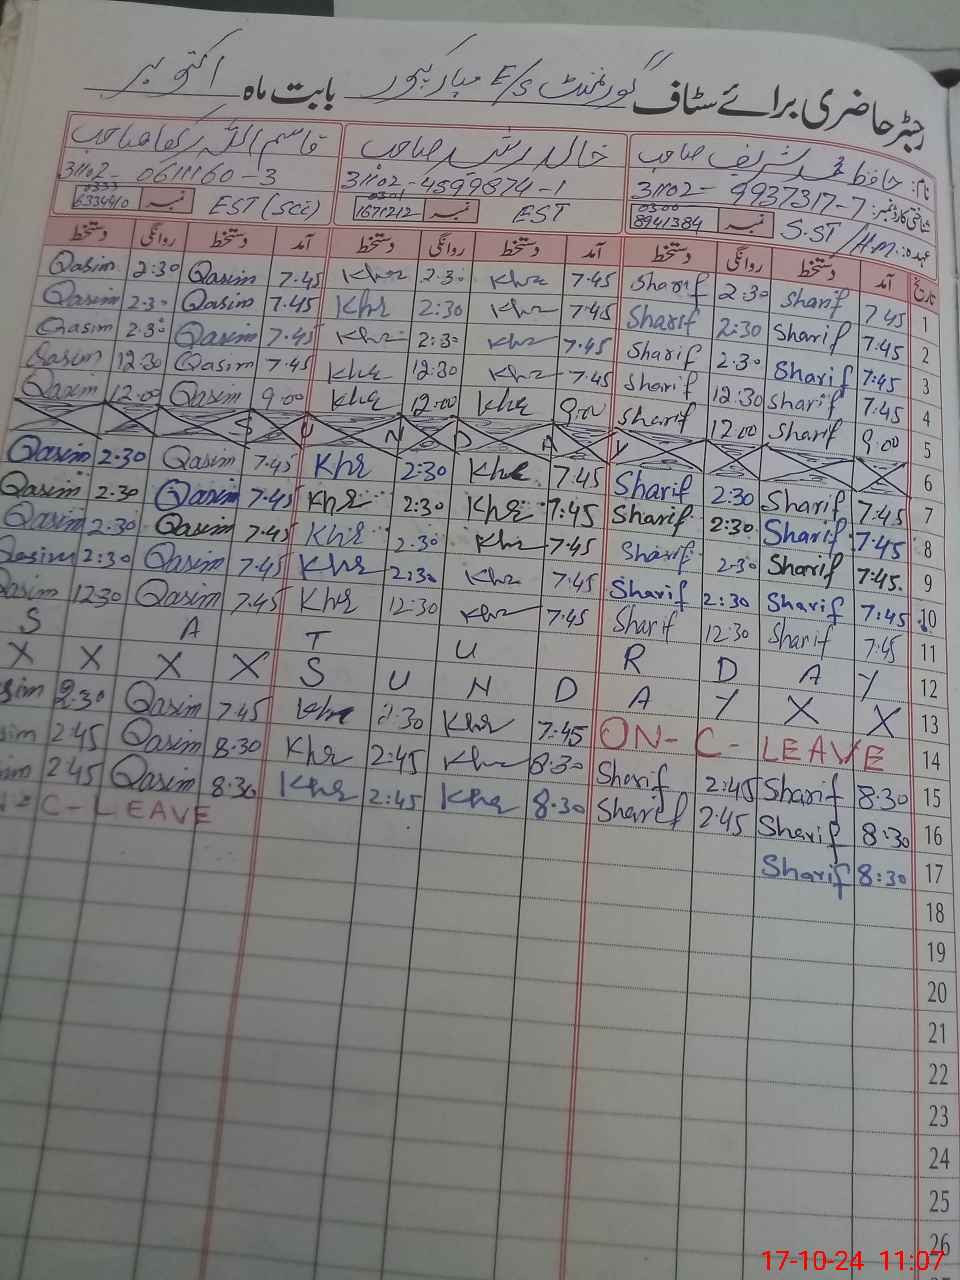 رجسٹر حاضری برائے سٹاف گورنمنٹ E/S مبارکپور بابت ماہ اکتوبر
نام: حافظ محمد شریف صاحب خالد رشید صاحب قاسم اللہ صاحب
شناختی کارڈ نمبر: 31102-9937317-7 31102-4599874-1 31102-0611160-3
عہدہ: S.ST/H.M. نمبر 0300 8941384 EST نمبر 1671212 EST (Sci) نمبر 0333 6334410
تاریخ آمد دستخط روانگی دستخط آمد دستخط روانگی دستخط آمد دستخط روانگی دستخط
1 7.45 Sharif 2:30 Sharif 7.45 Khr 2.30 Khr 7.45 Qasim 2:30 Qasim
2 7:45 Sharif 2:30 Sharif 7.45 Khr 2:30 Khr 7.45 Qasim 2.30 Qasim
3 7:45 Sharif 2.30 Sharif 7.45 Khr 2:30 Khr 7.45 Qasim 2.30 Qasim
4 7:45 Sharif 12:30 Sharif 7.45 Khr 12:30 Khr 7.45 Qasim 12.30 Qasim
5 9:00 Sharif 12:00 Sharif 9:00 Khr 12:00 Khr 9:00 Qasim 12:00 Qasim
6 S U N D A Y
7 7:45 Sharif 2:30 Sharif 7.45 Khr 2:30 Khr 7.45 Qasim 2.30 Qasim
8 7.45 Sharif 2:30 Sharif 7:45 Khr 2:30 Khr 7.45 Qasim 2.30 Qasim
9 7:45. Sharif 2.30 Sharif 7.45 Khr 2.30 Khr 7.45 Qasim 2.30 Qasim
10 7:45 Sharif 2:30 Sharif 7.45 Khr 2:30 Khr 7.45 Qasim 2:30 Qasim
11 7:45 Sharif 12:30 Sharif 7.45 Khr 12:30 Khr 7.45 Qasim 12:30 Qasim
12 S A T U R D A Y
13 X X X X S U N D A Y X X
14 ON-C-LEAVE 7:45 Khr 2:30 Khr 7.45 Qasim 2.30 sim
15 8.30 Sharif 2:45 Sharif 8.30 Khr 2:45 Khr 8.30 Qasim 2.45 sim
16 8:30 Sharif 2.45 Sharif 8.30 Khr 2:45 Khr 8.30 Qasim 2.45 im
17 8:30 Sharif C-LEAVE
18
19
20
21
22
23
24
25
26
17-10-24 11:07